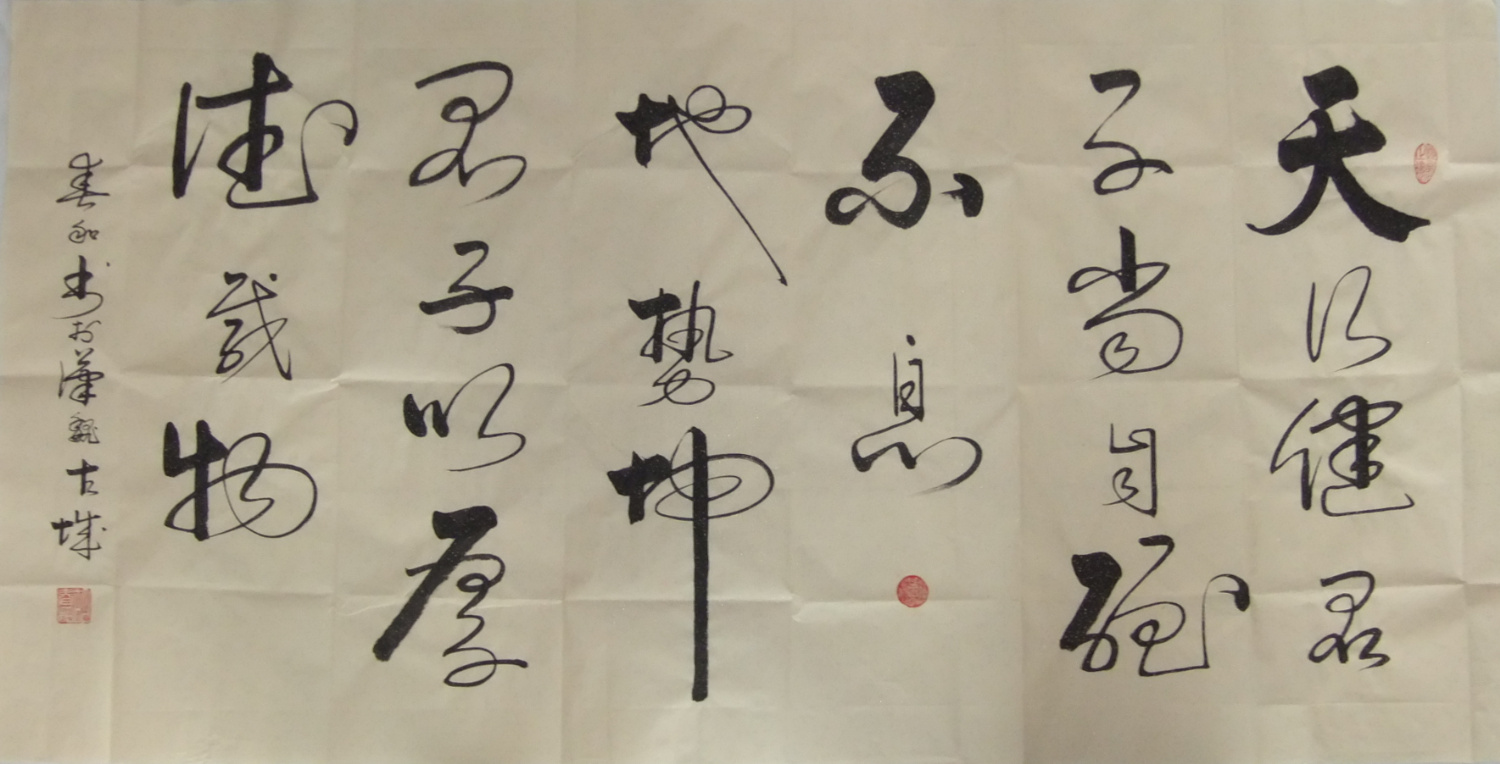 天行健君
子当自强
不息
地势坤
君子以厚
德载物
春和书於漢魏古城